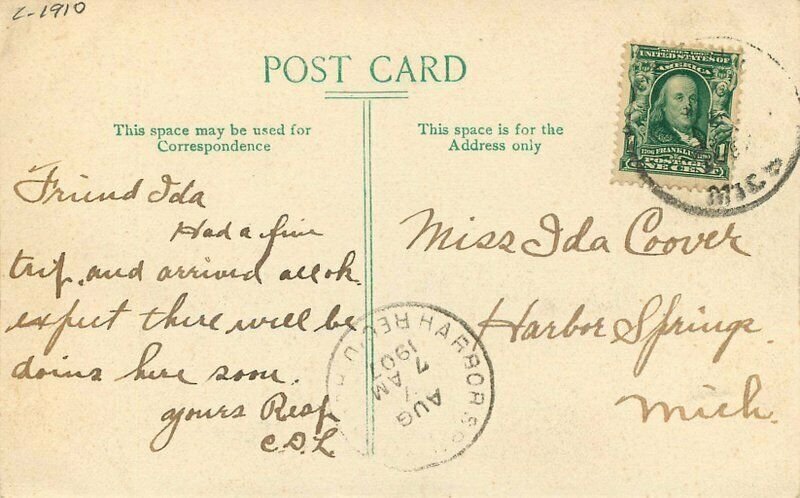 c-1910
POST CARD
This space may be used for
Correspondence
This space is for the
Address only
SERIES 1902
UNITED STATES OF
AMERICA
1706 FRANKLIN 1790
1 1
POSTAGE
ONE CENT
MIC
Friend Ida
Had a fine
trip, and arrived all ok.
expect there will be
doins here soon.
yours Resp
C.D.L.
Miss Ida Coover
Harbor Springs.
Mich.
HARBOR SP
REC'D
AUG
7
7 AM
1907